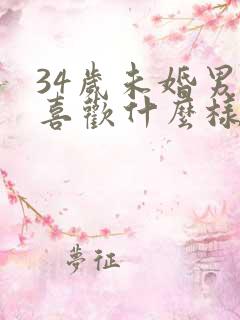 34歲未婚男
喜歡什麼樣
夢征